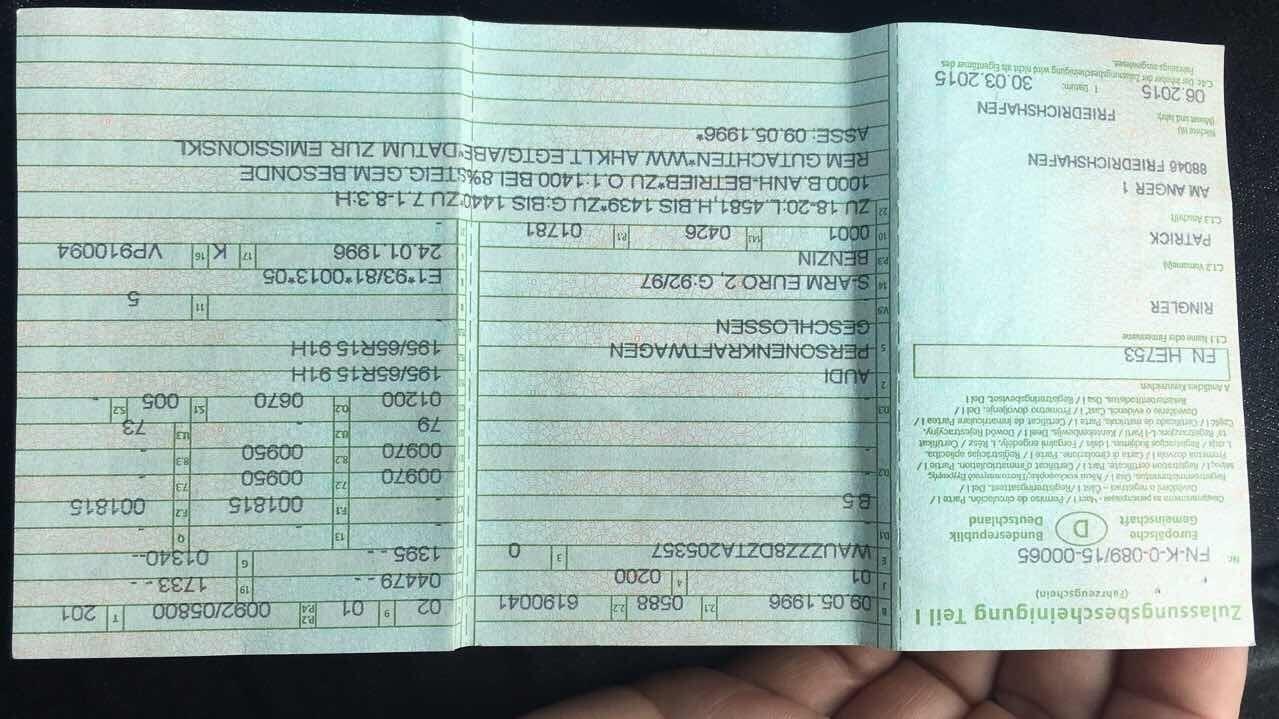 Zulassungsbescheinigung Teil I
(Fahrzeugschein)
Nr. FN-K-0-089/15-00065
Europäische Gemeinschaft
D
Bundesrepublik Deutschland
A Amtliches Kennzeichen
FN HE753
C.1.1 Name oder Firmenname
RINGLER
C.1.2 Vorname(n)
PATRICK
C.1.3 Anschrift
AM ANGER 1
88046 FRIEDRICHSHAFEN
Nächste HU
(Monat und Jahr)
06.2015
FRIEDRICHSHAFEN
I Datum: 30.03.2015
C.4c Der Inhaber der Zulassungsbescheinigung wird nicht als Eigentümer des
Fahrzeugs ausgewiesen.
B 09.05.1996 2.1 0588 2.2 6190041
J 01 4 0200
E WAUZZZ8DZTA205357 3 0
D.1 -
B 5
D.2 -
D.3 -
2 AUDI
5 PERSONENKRAFTWAGEN
GESCHLOSSEN
V.9 -
14 S-ARM EURO 2, G:92/97
P.3 BENZIN
10 0001 14.1 0426 P.1 01781
22 ZU 18-20:L.4581,H.BIS 1439*ZU G:BIS 1440*ZU 7.1-8.3:H
1000 B.ANH-BETRIEB*ZU O.1:1400 BEI 8%STEIG.GEM.BESONDE
REM GUTACHTEN*WW AHKLT.EGTG/ABE*DATUM ZUR EMISSIONSKL
ASSE: 09.05.1996*
02 9 01 P.2 P.4 0092/05800 T 201
04479-- 19 1733--
1395-- G 01340--
13 - Q -
F.1 001815 F.2 001815
7.2 00970 7.3 00950
8.2 00970 8.3 00950
79 U.3 73
O.1 01200 O.2 0670 S.1 005 S.2 -
195/65R15 91H
195/65R15 91H
- 11 5
E1*93/81*0013*05
24.01.1996 17 K 16 VP910094
-